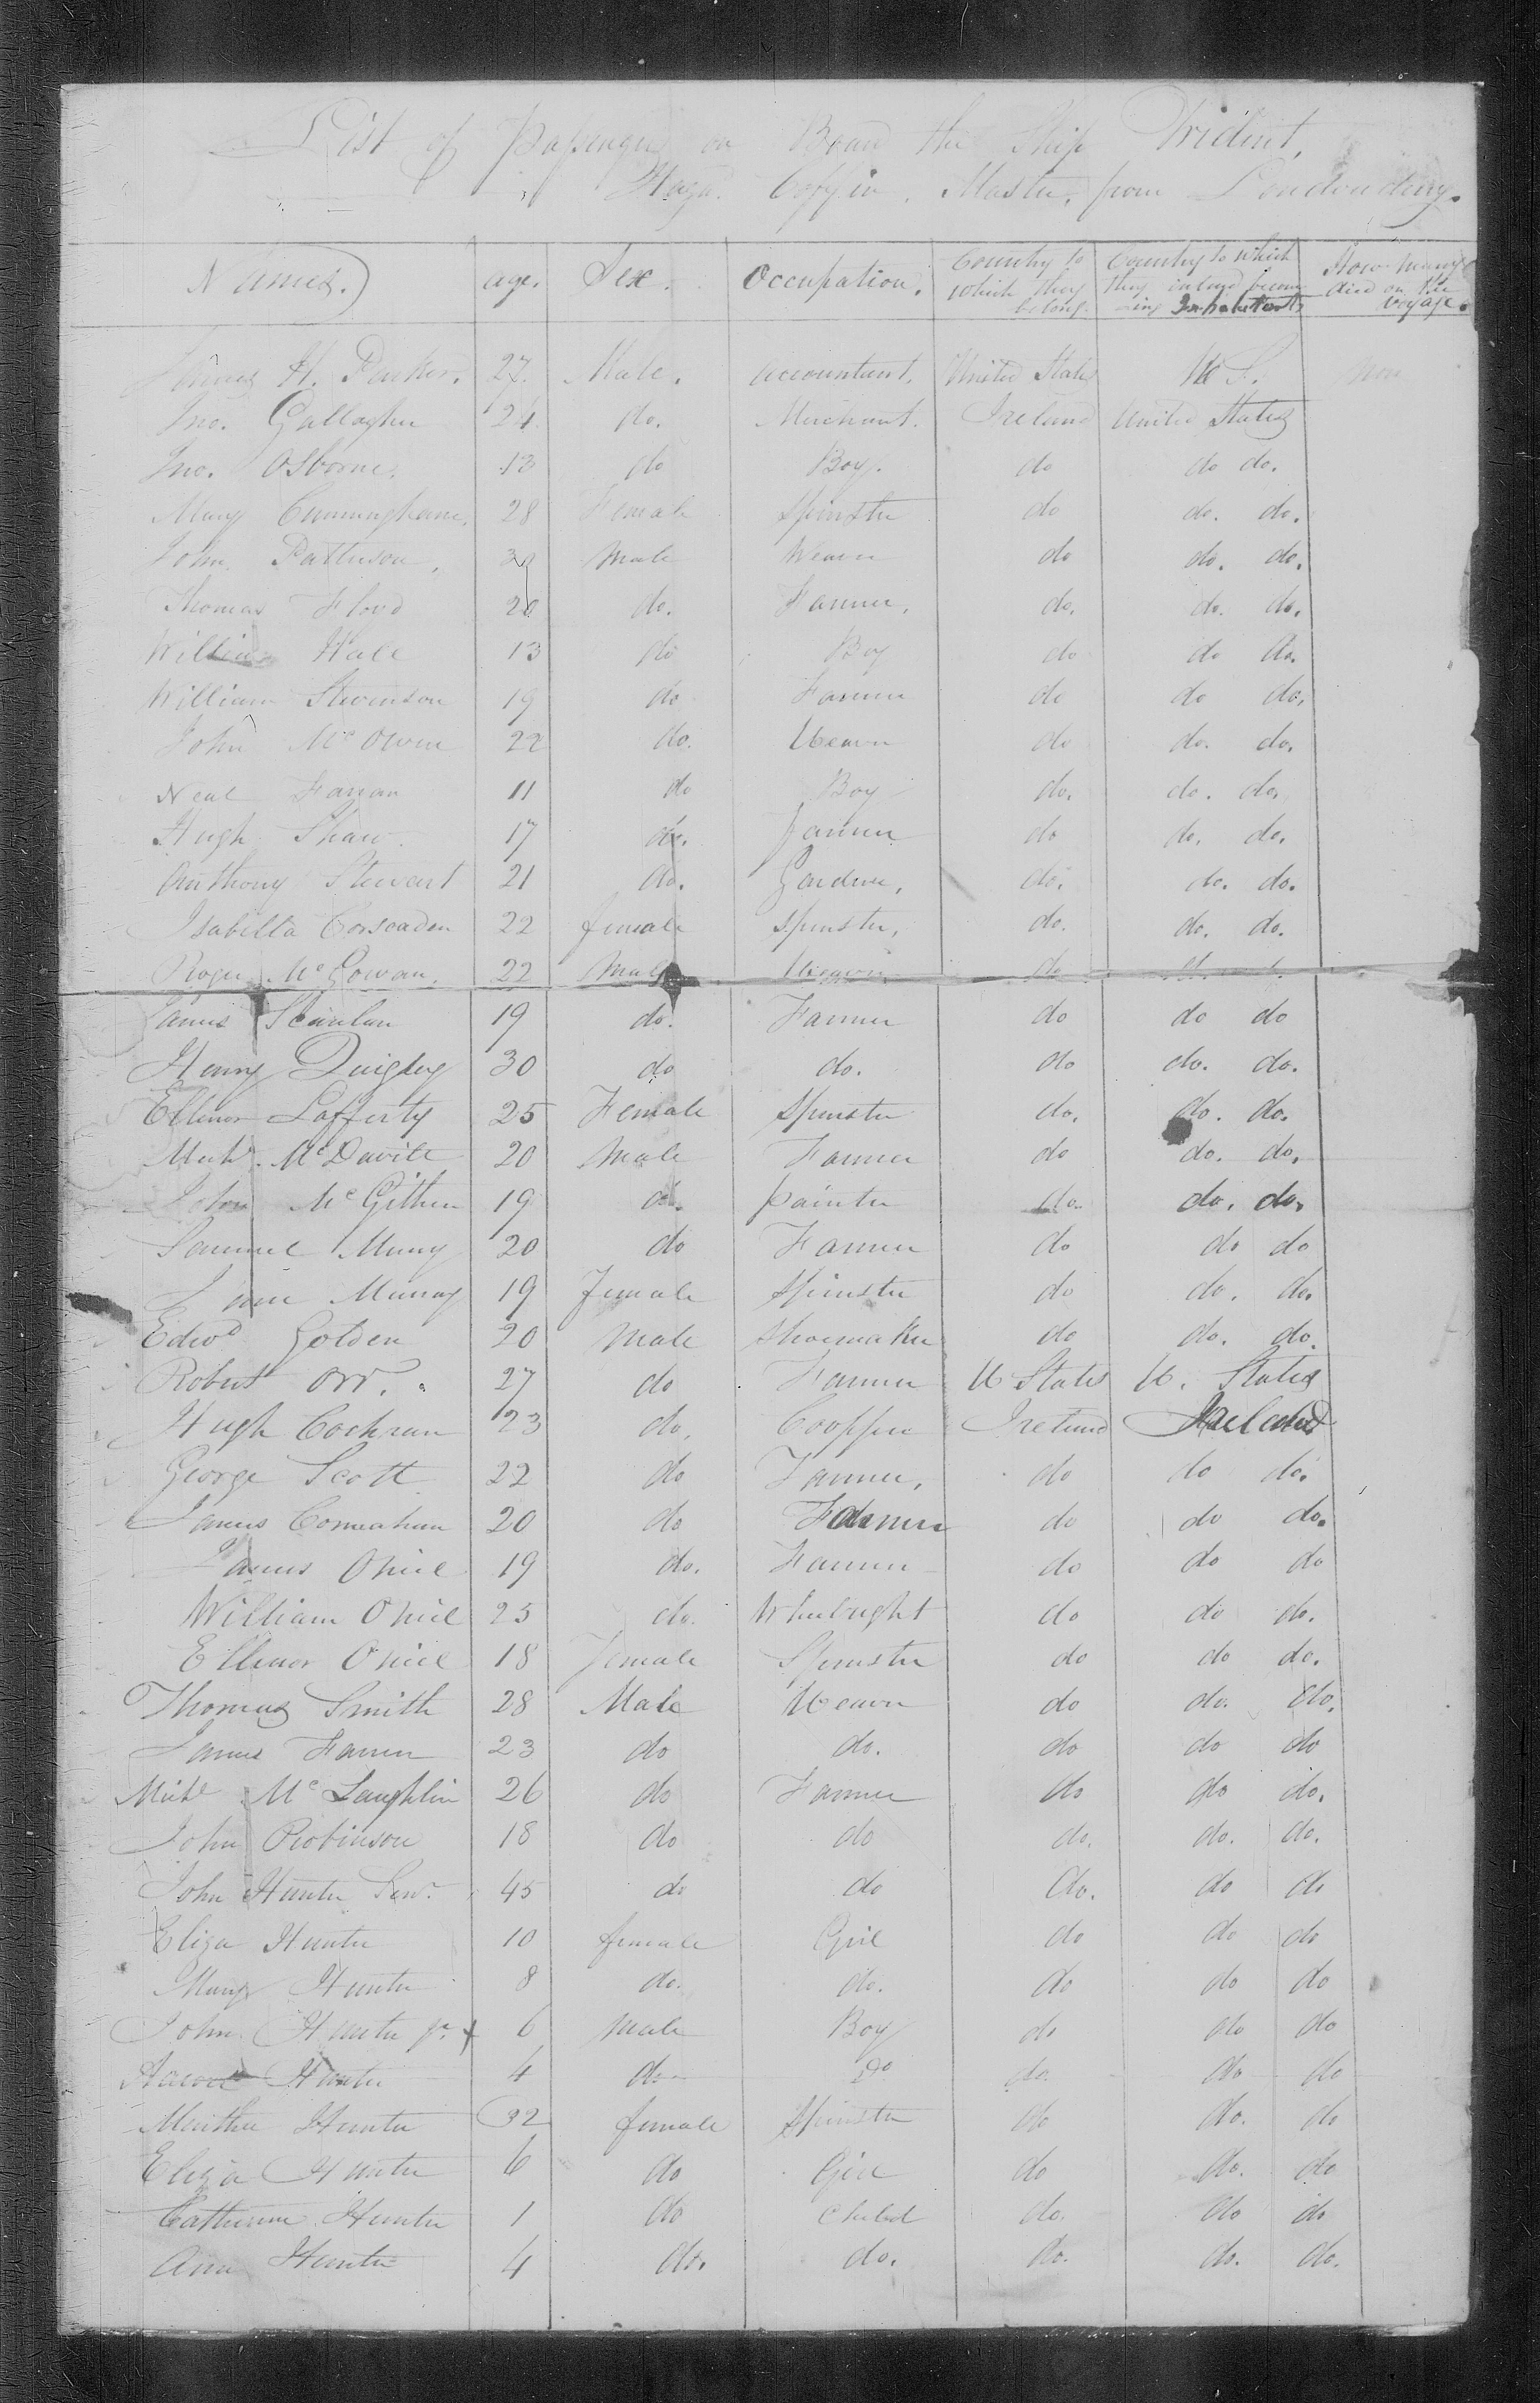 List of Passengers on Board the Ship Trident,
Coffin, Master, from Londonderry.
Names. age. Sex. Occupation. Country to which they belong. Country to which they intend becoming Inhabitants How many died on the voyage.
James H. Parker. 27. Male. accountant. United States U S. non
Jno. Gallagher 24. do. Merchant. Ireland United States
Jno. Osborne. 13 do Boy. do do do.
Mary Cunningham. 28 Female Spinster do do. do.
John Patterson. Male Weaver do do. do.
Thomas Floyd 20 do. Farmer. do. do. do.
William Hall 13 do Boy do do do.
William Stevenson 19 do Farmer do do do.
John McOwen 22 do. Weaver do do. do.
Neal Farran 11 do Boy do. do. do.
Hugh Shaw 17 do. Farmer do do. do.
Anthony Stewart 21 do. Gardner. do. do. do.
Isabella Corscaden 22 female Spinster. do. do. do.
Roger McGowan. 22 Male Weaver do
James Scanlan 19 do. Farmer do do do
Henry Quigley 30 do do. do do. do.
Ellenor Lafferty 25 Female Spinster do. do. do.
Michl. McDavitt 20 Male Farmer do do. do.
John 19 do. Painter do. do. do.
Samuel Murry 20 do Farmer do do do
Jane Murray 19 female Spinster do do. do.
Edwd Golden 20 Male Shoemaker do do. do.
Robert Orr. 27 do Farmer U States U. States
Hugh Cochran 23 do. Cooper Ireland Ireland
George Scott 22 do Farmer. do do do.
James 20 do Farmer do do do.
James ONeil 19 do. Farmer do do do
William ONeil 25 do. Wheelwright do do do.
Ellenor ONeil 18 Female Spinster do do do.
Thomas Smith 28 Male Weaver do do. do.
James Farren 23 do do. do do do
Michl McLaughlin 26 do Farmer do do do.
John Robinson 18 do do do. do. do.
John Hunter Senr. 45 do do do. do do
Eliza Hunter 10 female Girl do do do
Mary Hunter 8 do. do. do do do
John Hunter Jr. 6 Male Boy do do do
Hunter 4 do Do do. do do
Martha Hunter 32 female Spinster do do. do
Eliza Hunter 6 do Girl do do. do
Catherine Hunter 1 do Child do. do do
Ann Hunter 4 do. do. do. do. do.